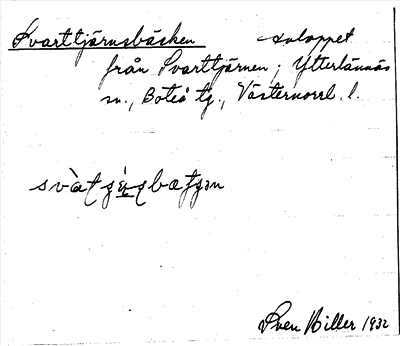 Svarttjärnsbäcken avloppet
från Svarttjärnen; Ytterlännäs
sn., Boteå tg., Västernorrl. l.
Sven Biller 1932